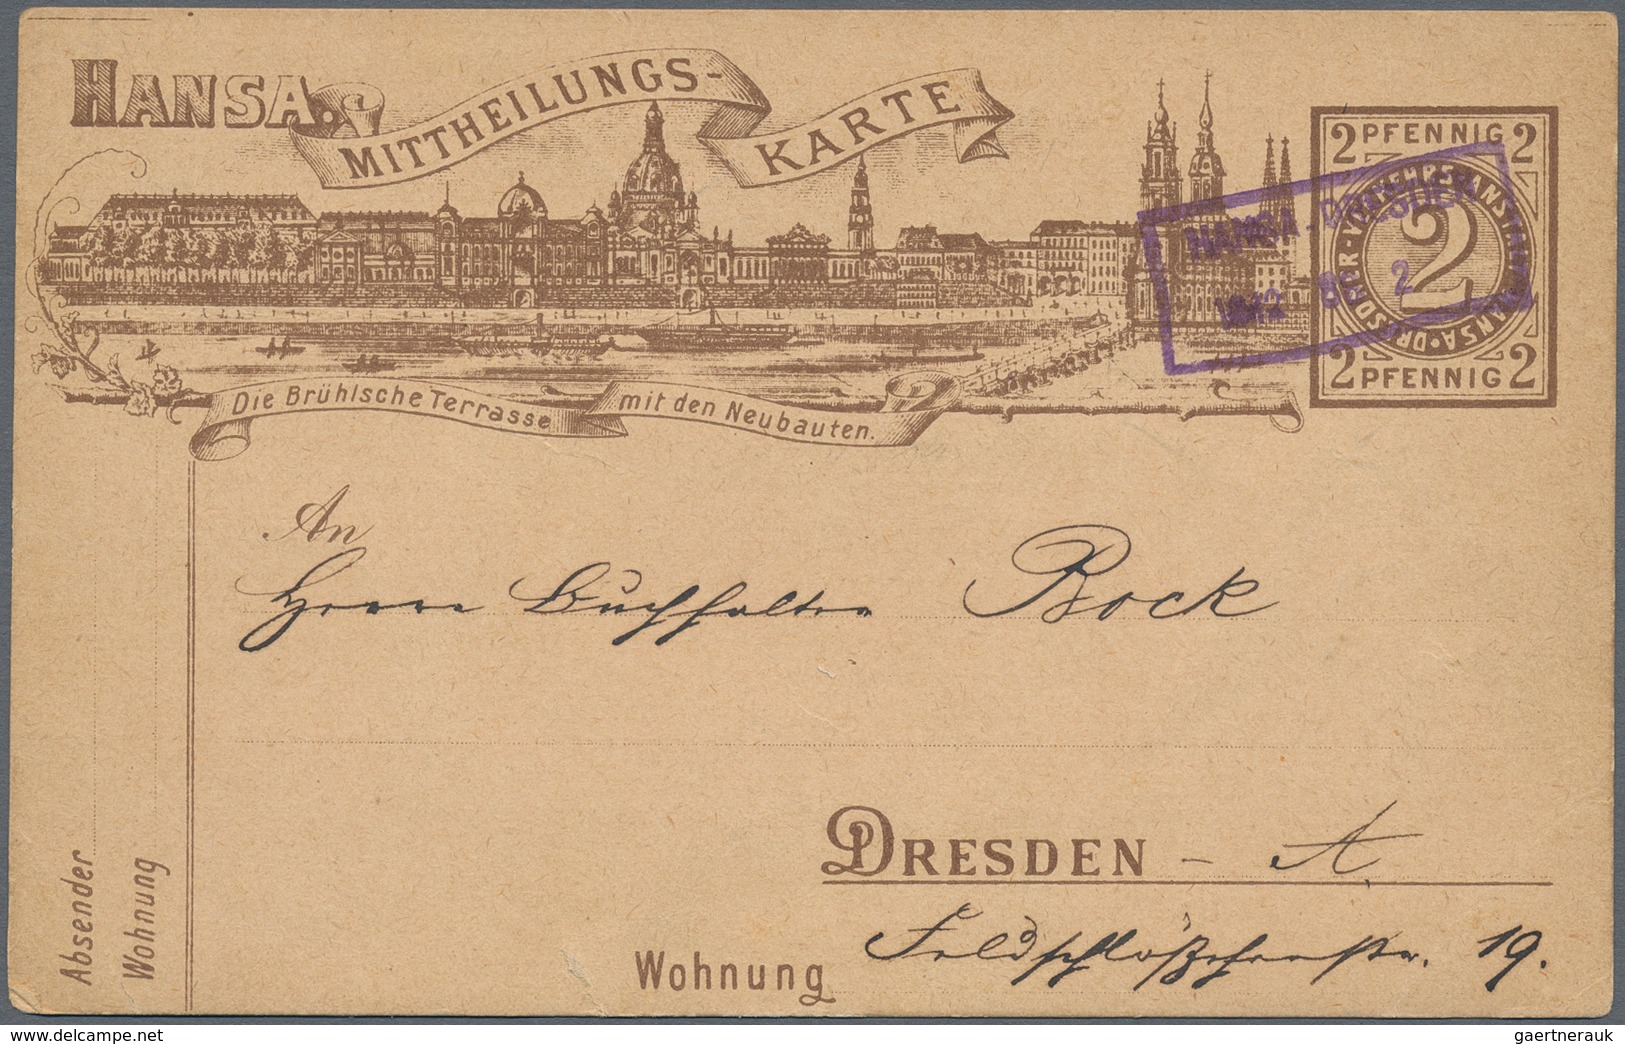 HANSA.
MITTHEILUNGS-
KARTE
2 PFENNIG 2
DRESDNER · VERKEHRSANSTALT · HANSA ·
2
2 PFENNIG 2
HANSA. DRESDEN
8 2
Die Brühlsche Terrasse
mit den Neubauten.
An
Herrn Buchhalter Bock
DRESDEN - A.
Wohnung Feldschlößchenstr. 19.
Absender
Wohnung
www.delcampe.net
gaertnerauk